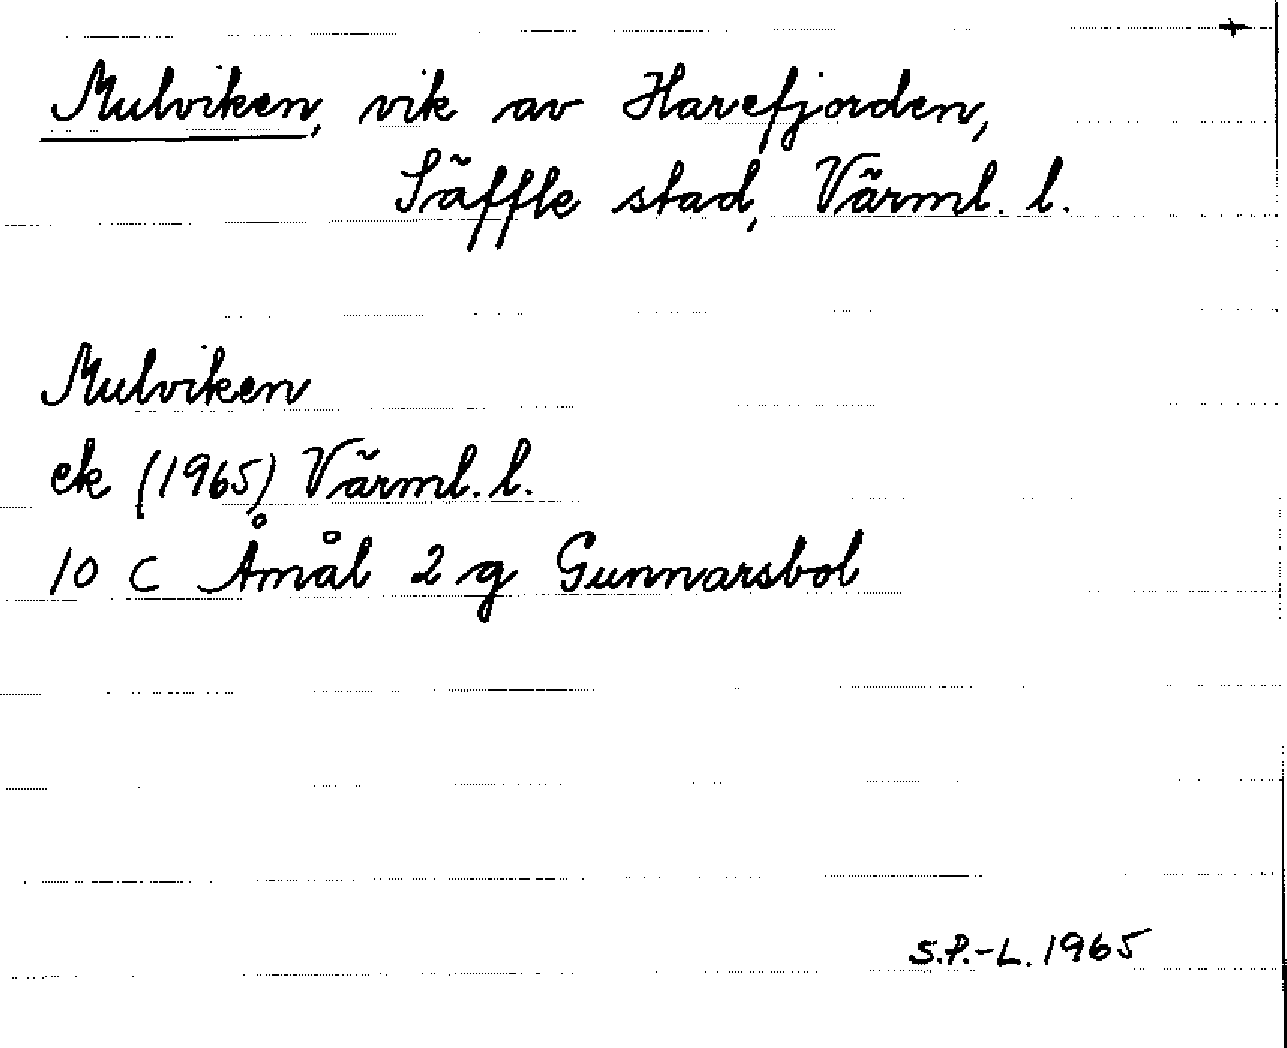 Mulviken, vik av Harefjorden,
Säffle stad, Värml. l.
Mulviken
ek (1965) Värml. l.
10 C Åmål 2 g Gunnarsbol
S.P.-L. 1965